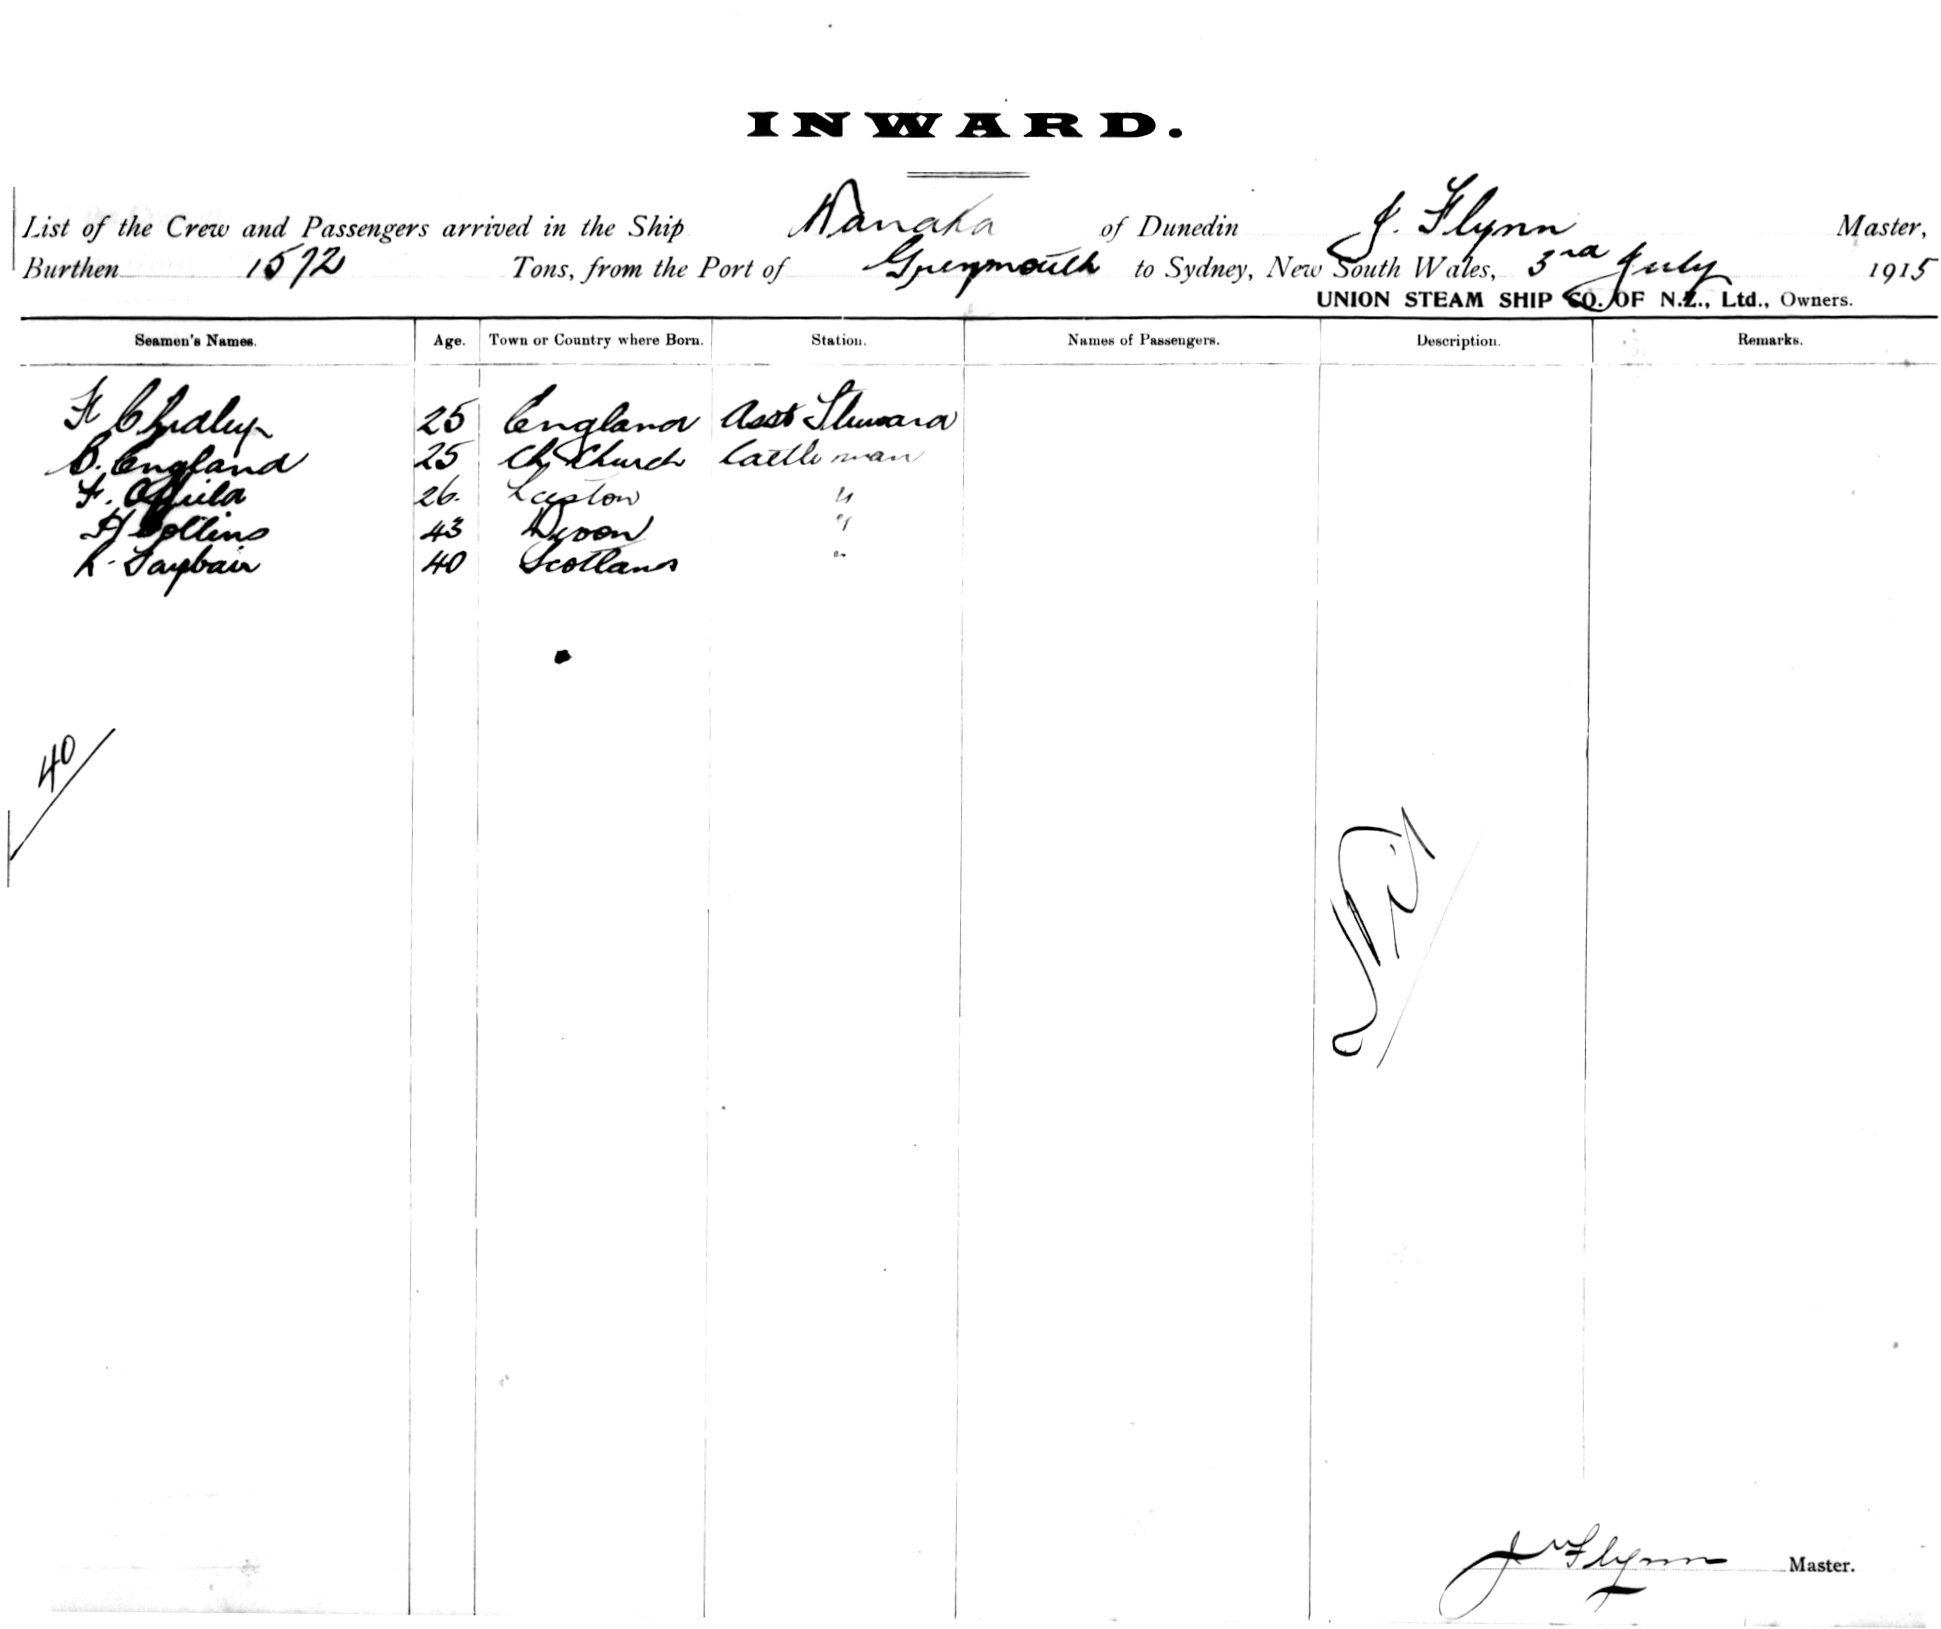 INWARD.
List of the Crew and Passengers arrived in the Ship Wanaka of Dunedin J. Flynn Master,
Burthen 1572 Tons, from the Port of Greymouth to Sydney, New South Wales, 3rd July 1915
UNION STEAM SHIP CO. OF N.Z., Ltd., Owners.
Seamen's Names. Age. Town or Country where Born. Station. Names of Passengers. Description. Remarks.
F Chidley 25 England Asst Steward
C. England 25 Ch Church Cattleman
F. 26. Leeston "
H Collins 43 Devon "
40 Scotland "
40
Nil
J Flynn Master.